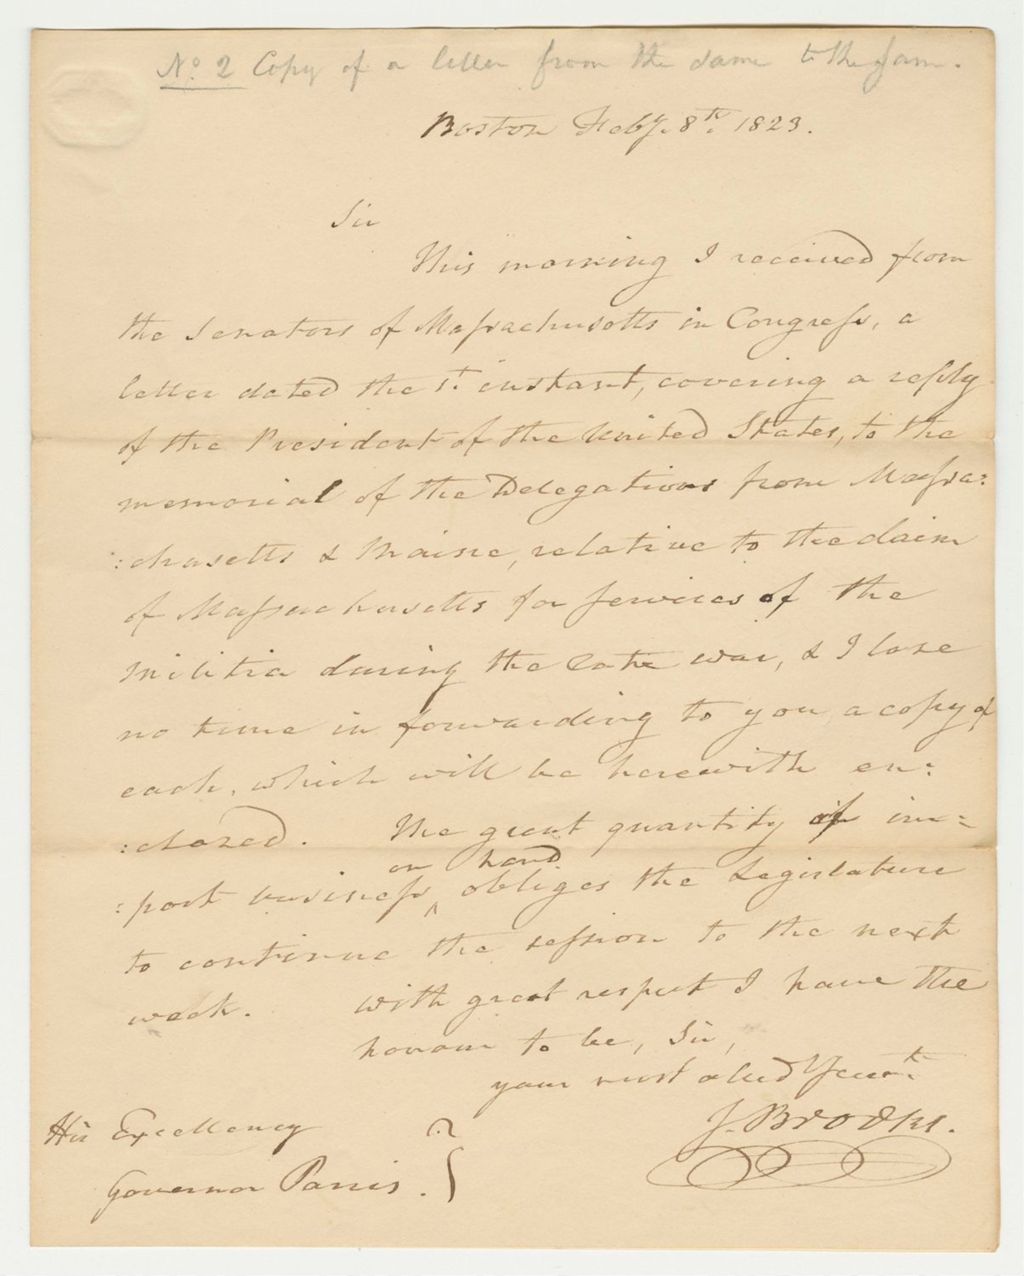 No. 2 Copy of a letter from the same to the same.
Boston Feby. 8th. 1823.
Sir
This morning I received from
the Senators of Massachusetts in Congress, a
letter dated the 1st. instant, covering a reply
of the President of the United States, to the
memorial of the Delegations from Massa:
:chusetts & Maine, relative to the claim
of Massachusetts for services of the
Militia during the late war, & I lose
no time in forwarding to you a copy of
each, which will be herewith en:
:closed. The great quantity of im:
on hand
:port business ^ obliges the Legislature
to continue the session to the next
week. With great respect I have the
honour to be, Sir,
your most obed
J. Brooks.
His Excellency
Governor Parris.